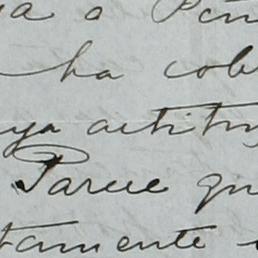 a a Pen
ha cob
ya actitu
Parece qu
tamente